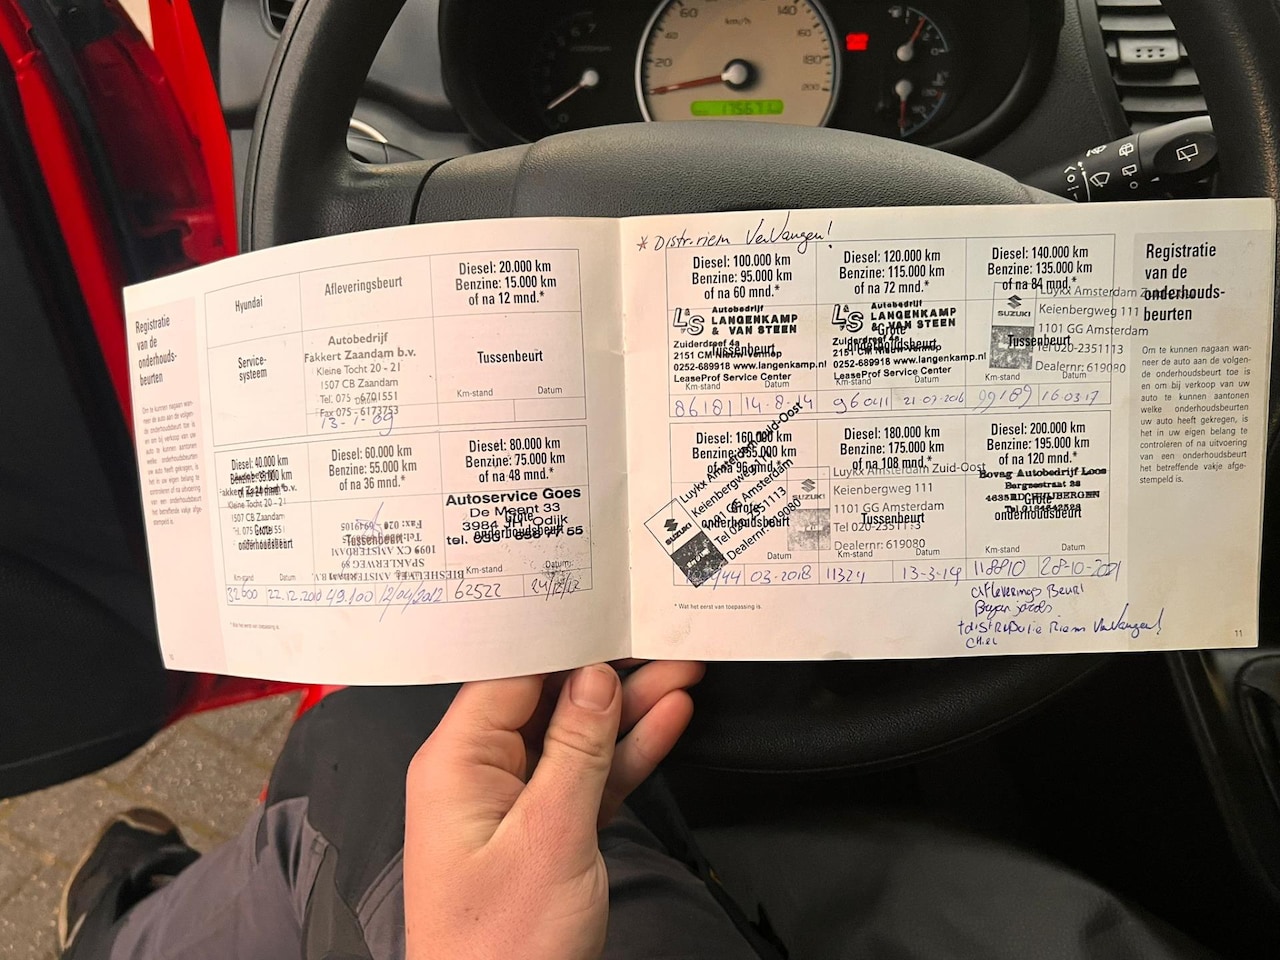 60
140
km/h
40
160
20
180
200
Registratie
van de
onderhouds-
beurten
Om te kunnen nagaan wan-
neer de auto aan de volgen-
de onderhoudsbeurt toe is
en om bij verkoop van uw
auto te kunnen aantonen
welke onderhoudsbeurten
uw auto heeft gekregen, is
het in uw eigen belang te
controleren of na uitvoering
van een onderhoudsbeurt
het betreffende vakje afge-
stempeld is.
Hyundai
Afleveringsbeurt
Diesel: 20.000 km
Benzine: 15.000 km
of na 12 mnd.*
Service-
systeem
Autobedrijf
Fakkert Zaandam b.v.
Kleine Tocht 20 - 21
1507 CB Zaandam
Tel. 075 - 6701551
Fax 075 - 6173753
13-1-09
Tussenbeurt
Km-stand Datum
Diesel: 40.000 km
of na 24 mnd.*
Fakkert Zaandam b.v.
Kleine Tocht 20 - 21
1507 CB Zaandam
Grote
onderhoudsbeurt
Km-stand Datum
32600 22.12.2010
Diesel: 60.000 km
Benzine: 55.000 km
of na 36 mnd.*
Tussenbeurt
SPAKLERWEG
1099 CX AMSTERDAM
49.100 12/04/2012
Diesel: 80.000 km
Benzine: 75.000 km
of na 48 mnd.*
Autoservice Goes
De Meent 33
3984 Odijk
Grote
onderhoudsbeurt
Datum:
62522 24/12/12
* Wat het eerst van toepassing is.
10
* Distr.riem Vervangen!
Diesel: 100.000 km
Benzine: 95.000 km
of na 60 mnd.*
L&S Autobedrijf
LANGENKAMP
& VAN STEEN
Zuiderdreef 4a
2151 CM Nieuw-Vennep
Tussenbeurt
0252-689918 www.langenkamp.nl
LeaseProf Service Center
Km-stand Datum
86181 14-8-14
Diesel: 120.000 km
Benzine: 115.000 km
of na 72 mnd.*
L&S Autobedrijf
LANGENKAMP
& VAN STEEN
Grote
onderhoudsbeurt
Zuiderdreef 4a
2151 CM Nieuw-Vennep
0252-689918 www.langenkamp.nl
LeaseProf Service Center
Km-stand Datum
96041 21-07-2016
Diesel: 140.000 km
Benzine: 135.000 km
of na 84 mnd.*
SUZUKI
Luykx Amsterdam Zuid-Oost
Keienbergweg 111
1101 GG Amsterdam
Tel 020-2351113
Dealernr: 619080
Tussenbeurt
Km-stand Datum
99189 16-03-17
Diesel: 160.000 km
Benzine: 155.000 km
of na 96 mnd.*
SUZUKI
Luykx Amsterdam Zuid-Oost
Keienbergweg 111
1101 GG Amsterdam
Tel 020-2351113
Dealernr: 619080
Grote
onderhoudsbeurt
Datum
03-2018
Diesel: 180.000 km
Benzine: 175.000 km
of na 108 mnd.*
SUZUKI
Luykx Amsterdam Zuid-Oost
Keienbergweg 111
1101 GG Amsterdam
Tel 020-2351113
Dealernr: 619080
Tussenbeurt
Km-stand Datum
11324 13-3-19
Diesel: 200.000 km
Benzine: 195.000 km
of na 120 mnd.*
Bovag Autobedrijf Loos
Grote
onderhoudsbeurt
Km-stand Datum
118810 28-10-2021
afleverings Beurt
+distributie Riem Vervangen!
* Wat het eerst van toepassing is.
Registratie
van de
onderhouds-
beurten
Om te kunnen nagaan wan-
neer de auto aan de volgen-
de onderhoudsbeurt toe is
en om bij verkoop van uw
auto te kunnen aantonen
welke onderhoudsbeurten
uw auto heeft gekregen, is
het in uw eigen belang te
controleren of na uitvoering
van een onderhoudsbeurt
het betreffende vakje afge-
stempeld is.
11